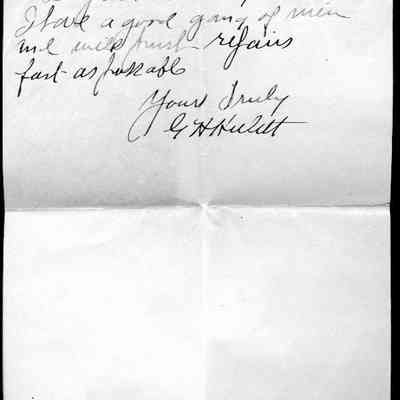 I have a good gang of men
and will push repairs
fast as possible
Yours Truly